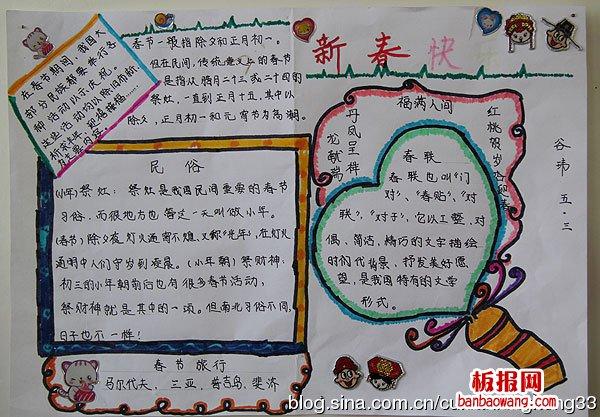 在春节期间，我国大
部分民族都要举行各
种活动以示庆祝。
这些活动均以除旧布新
春节一般指除夕和正月初一。
但在民间，传统意义上的春节
是指从腊月二十三或二十四的
祭灶，一直到正月十五，其中以
除夕，正月初一和元宵节为高潮。
新春快
民俗
(小年)祭灶：祭灶是我国民间重要的春节
习俗，而很地方也每这一天叫做小年。
(春节)除夕夜灯火通宵不熄，
通明中人们守岁到凌晨。(小年朝)祭财神：
初三的小年朝前后也有很多春节活动，
祭财神就是其中的一项。但南北习俗不同，
日子也不一样！
春节旅行
马尔代夫、三亚、普吉岛、斐济
福满人间
丹凤呈祥
龙献瑞
红桃贺岁
春联
春联也叫“门
对”、“春贴”、“对
联”、“对子”，它以工整、对
偶、简洁、精巧的文字描绘
时代背景，抒发美好愿
望，是我国特有的文学
形式。
谷玮 五·三
板报网
banbaowang.com
blog.sina.com.cn/